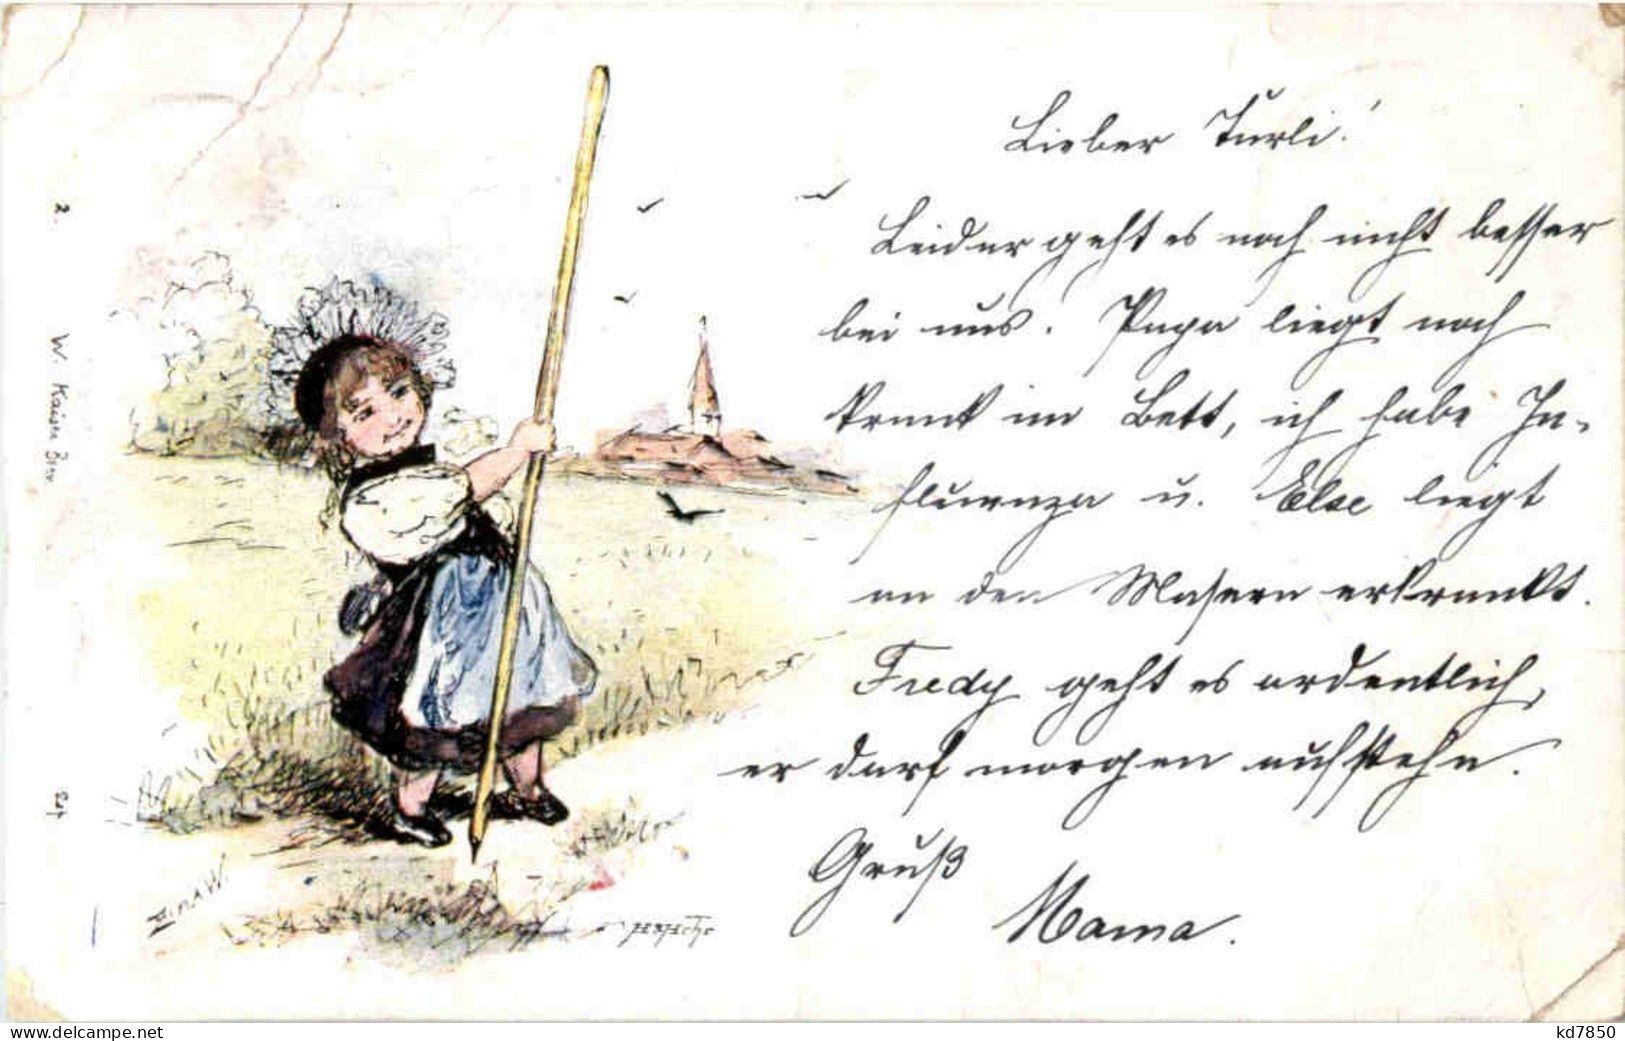 Lieber Turli!
Leider geht es noch nicht besser
bei uns. Papa liegt noch
krank im Bett, ich habe In-
fluenza u. Else liegt
an den Masern erkrankt.
Fredy geht es ordentlich,
er darf morgen aufstehn.
Gruß
Mama.
2.
W. Kaiser Bern
www.delcampe.net
kd7850